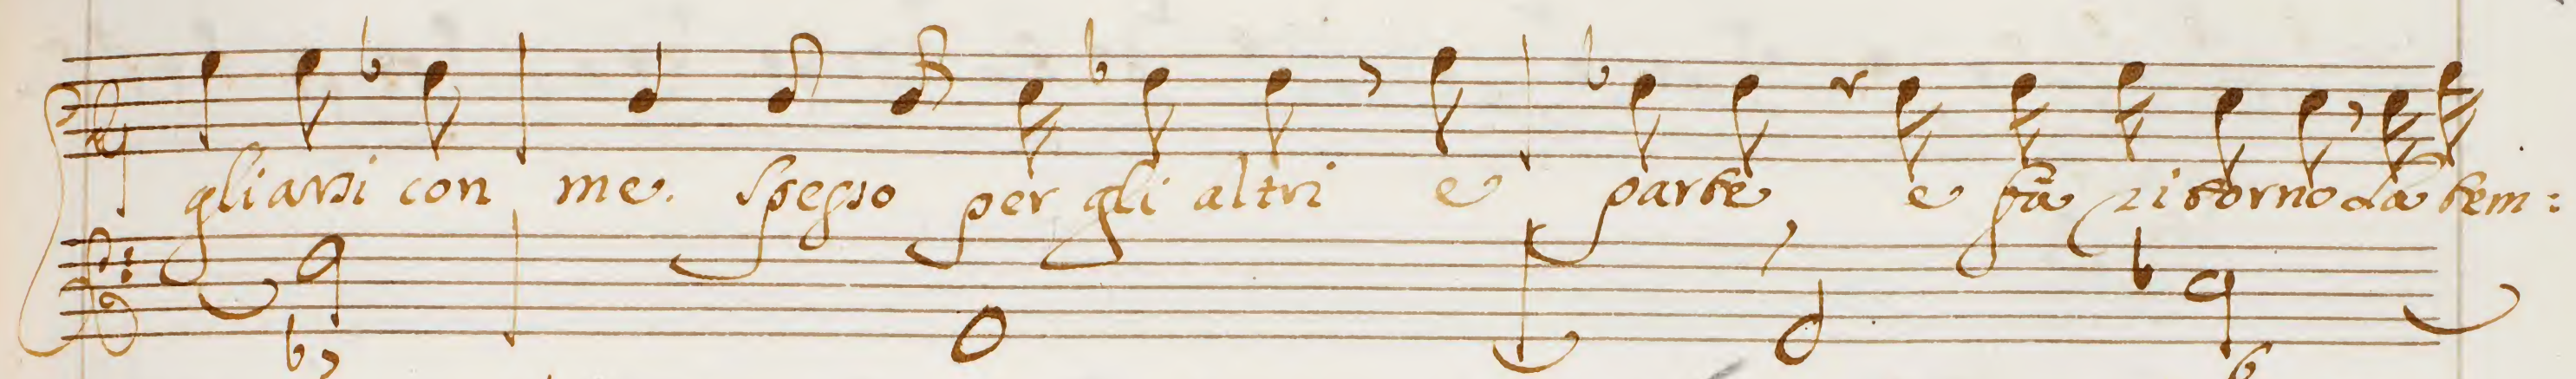 gliarsi con me. spesso per gli altri e parte e fà ritorno da tem:
b7
6